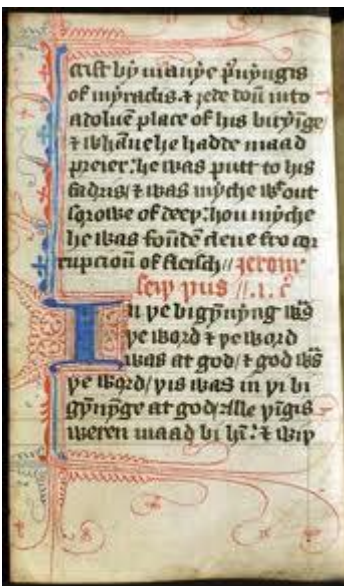 crist bi manye pryuyngis
of myraclis. & ȝede doū into
a doluē place of his biryīge
& whāne he hadde maad
preier: he was putt to his
fadris/ & was myche wtout
sorowe of deeþ: hou myche
he was foūde clene fro cor
rupcioū of fleisch// Jerom
seiþ þus //. 1. c̄
In þe bigynnyng was
þe word & þe word
was at god/ & god was
þe word/ þis was in þe bi
gynnynge at god/ alle þīgis
weren maad bi hī: & wiþ